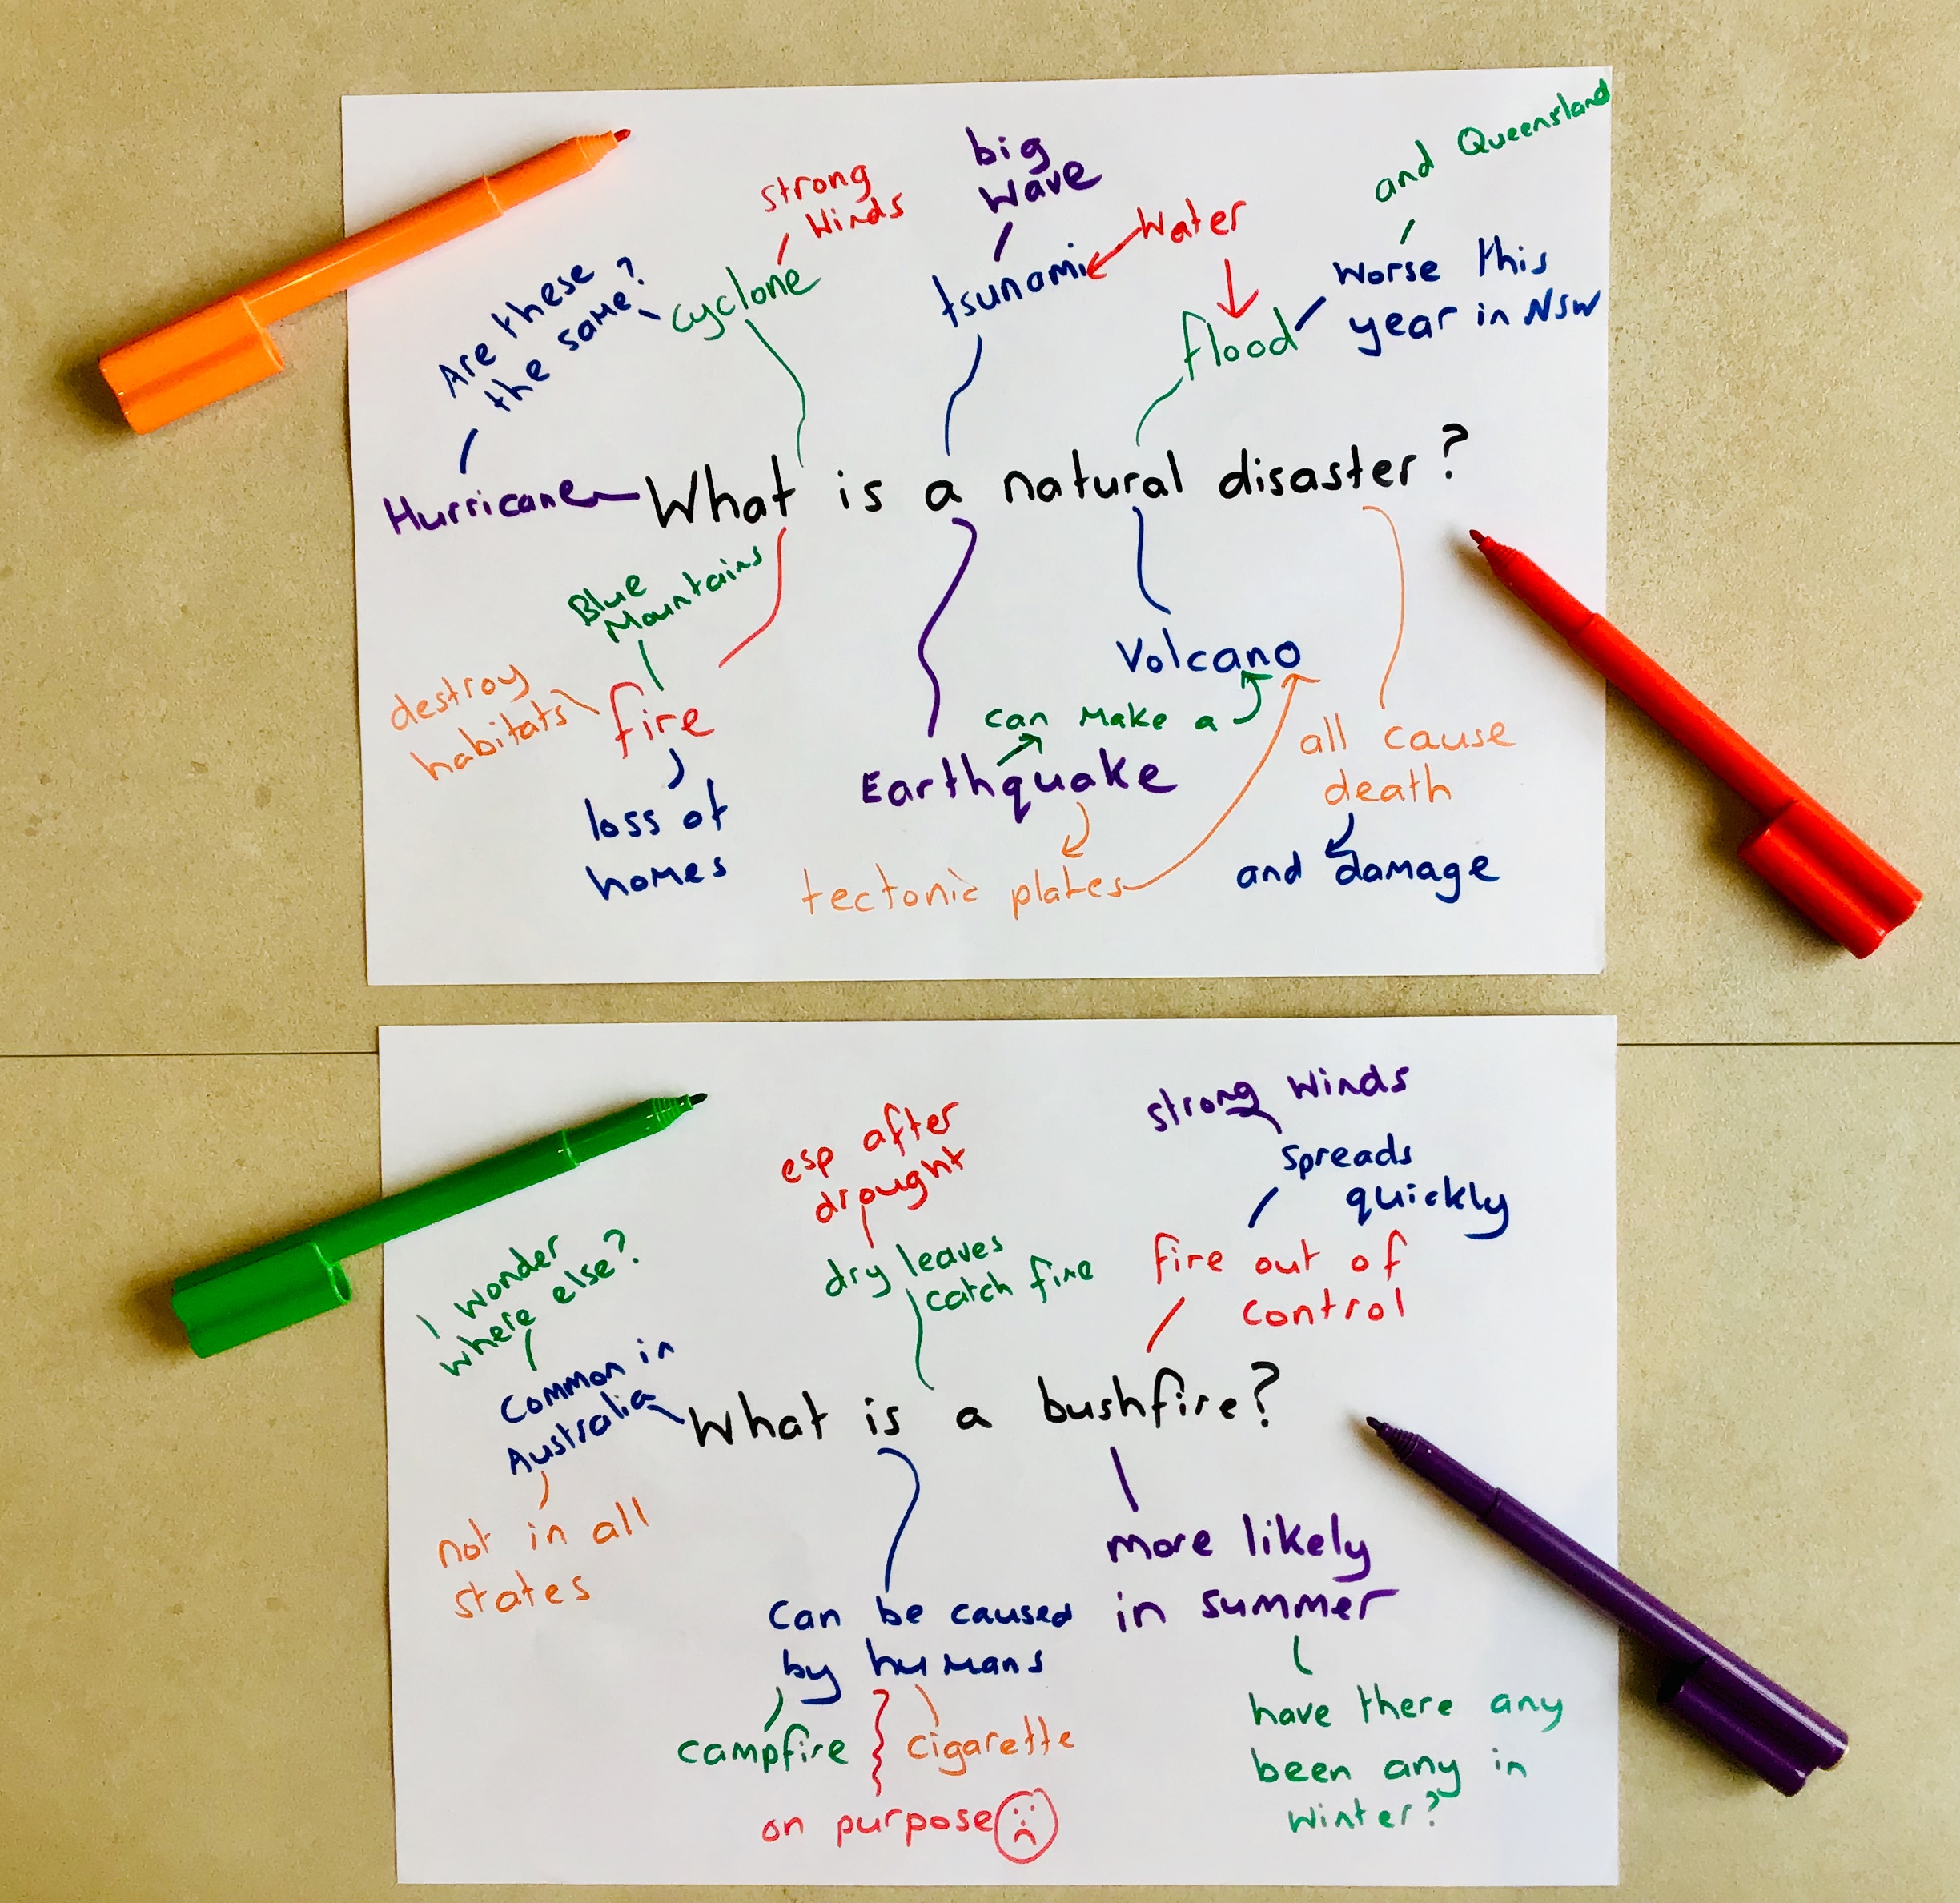 and Queensland
big
wave
strong
winds
Water
Are these
the same?
cyclone
tsunami
flood
worse this
year in NSW
Hurricane
What is a natural disaster?
Blue
Mountains
destroy
habitats
fire
loss of
homes
Volcano
can make a
Earthquake
tectonic plates
all cause
death
and damage
strong winds
spreads
quickly
esp after
drought
dry leaves
catch fire
fire out of
control
i wonder
where else?
Common in
Australia
What is a bushfire?
not in all
states
more likely
in summer
can be caused
by humans
campfire
cigarette
on purpose
have there any
been any in
winter?